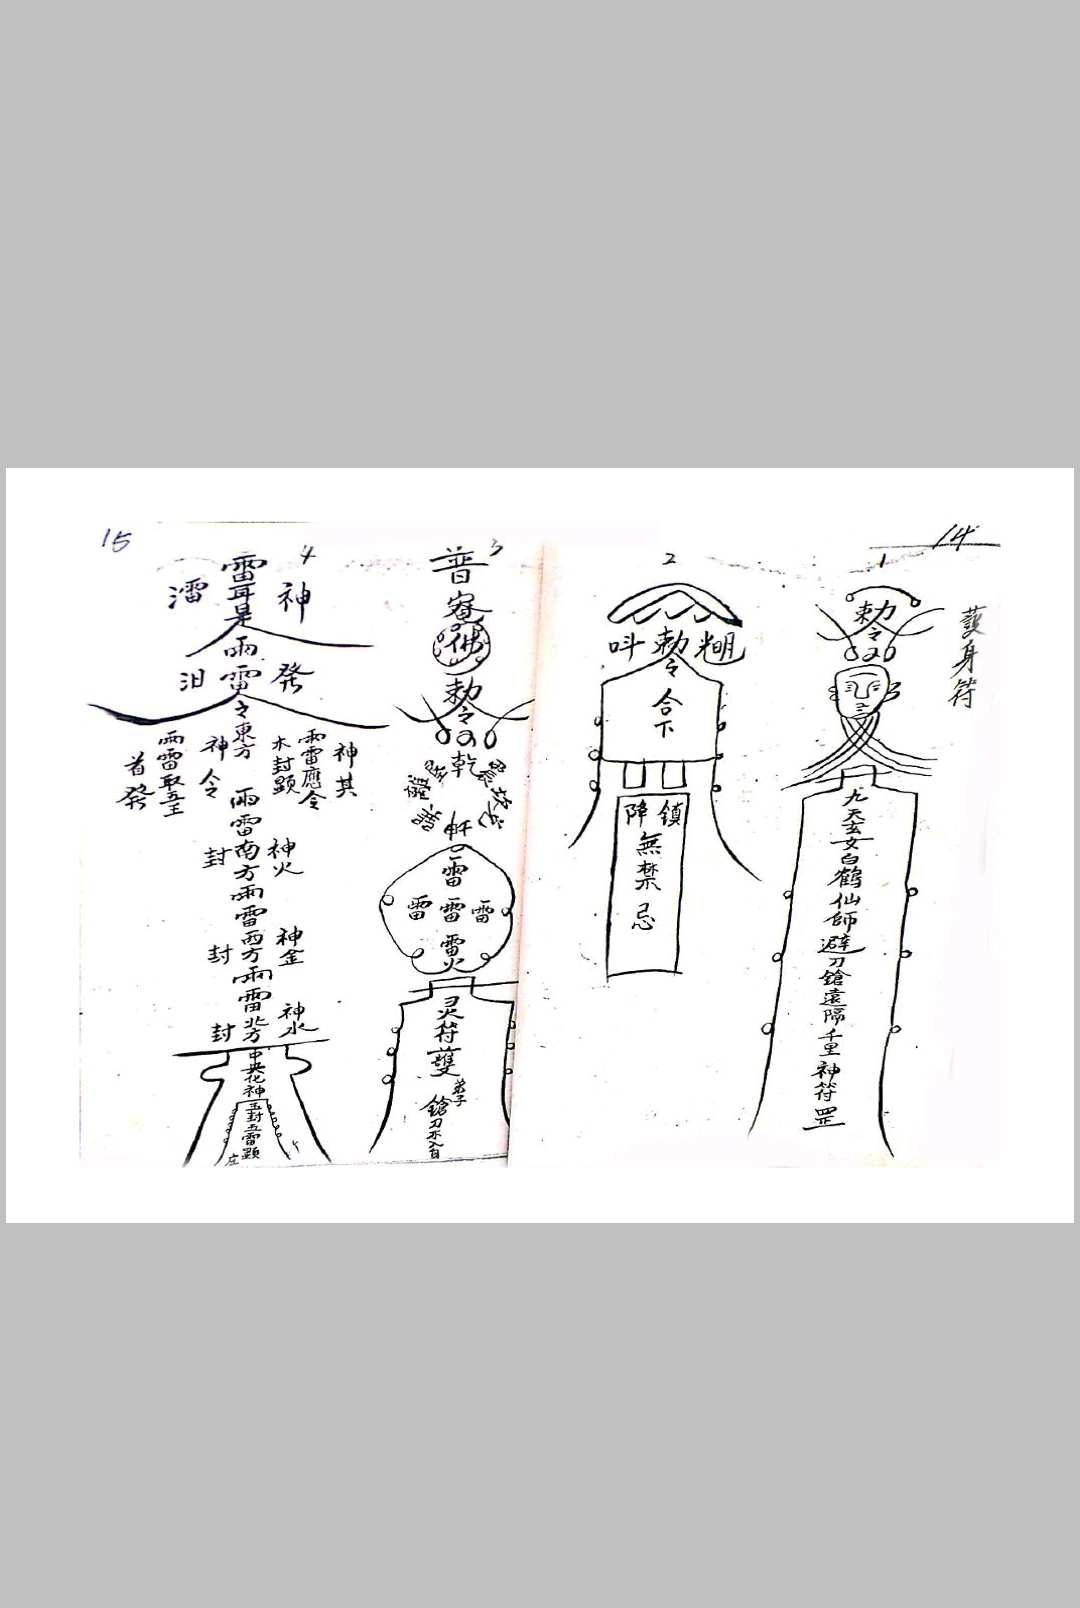 14
護身符
1
勅令
九天玄女白鶴仙師避刀鎗遠隔千里神符罡
2
勅令
合下
鎮
降
無禁忌
3
普
佛
勅令
乾
雷
雷 雷 雷
雷火
灵符
弟子
鎗刀不入自
15
4
雷
神
是
雨雷
發
汨
令東方
神其
雨雷應令
木封顕
神令
雨雷取五王
首發
雨雷南方
神火
封
雨雷西方
神金
封
雨雷北方
神水
封
中央化神
玉封五雷顕